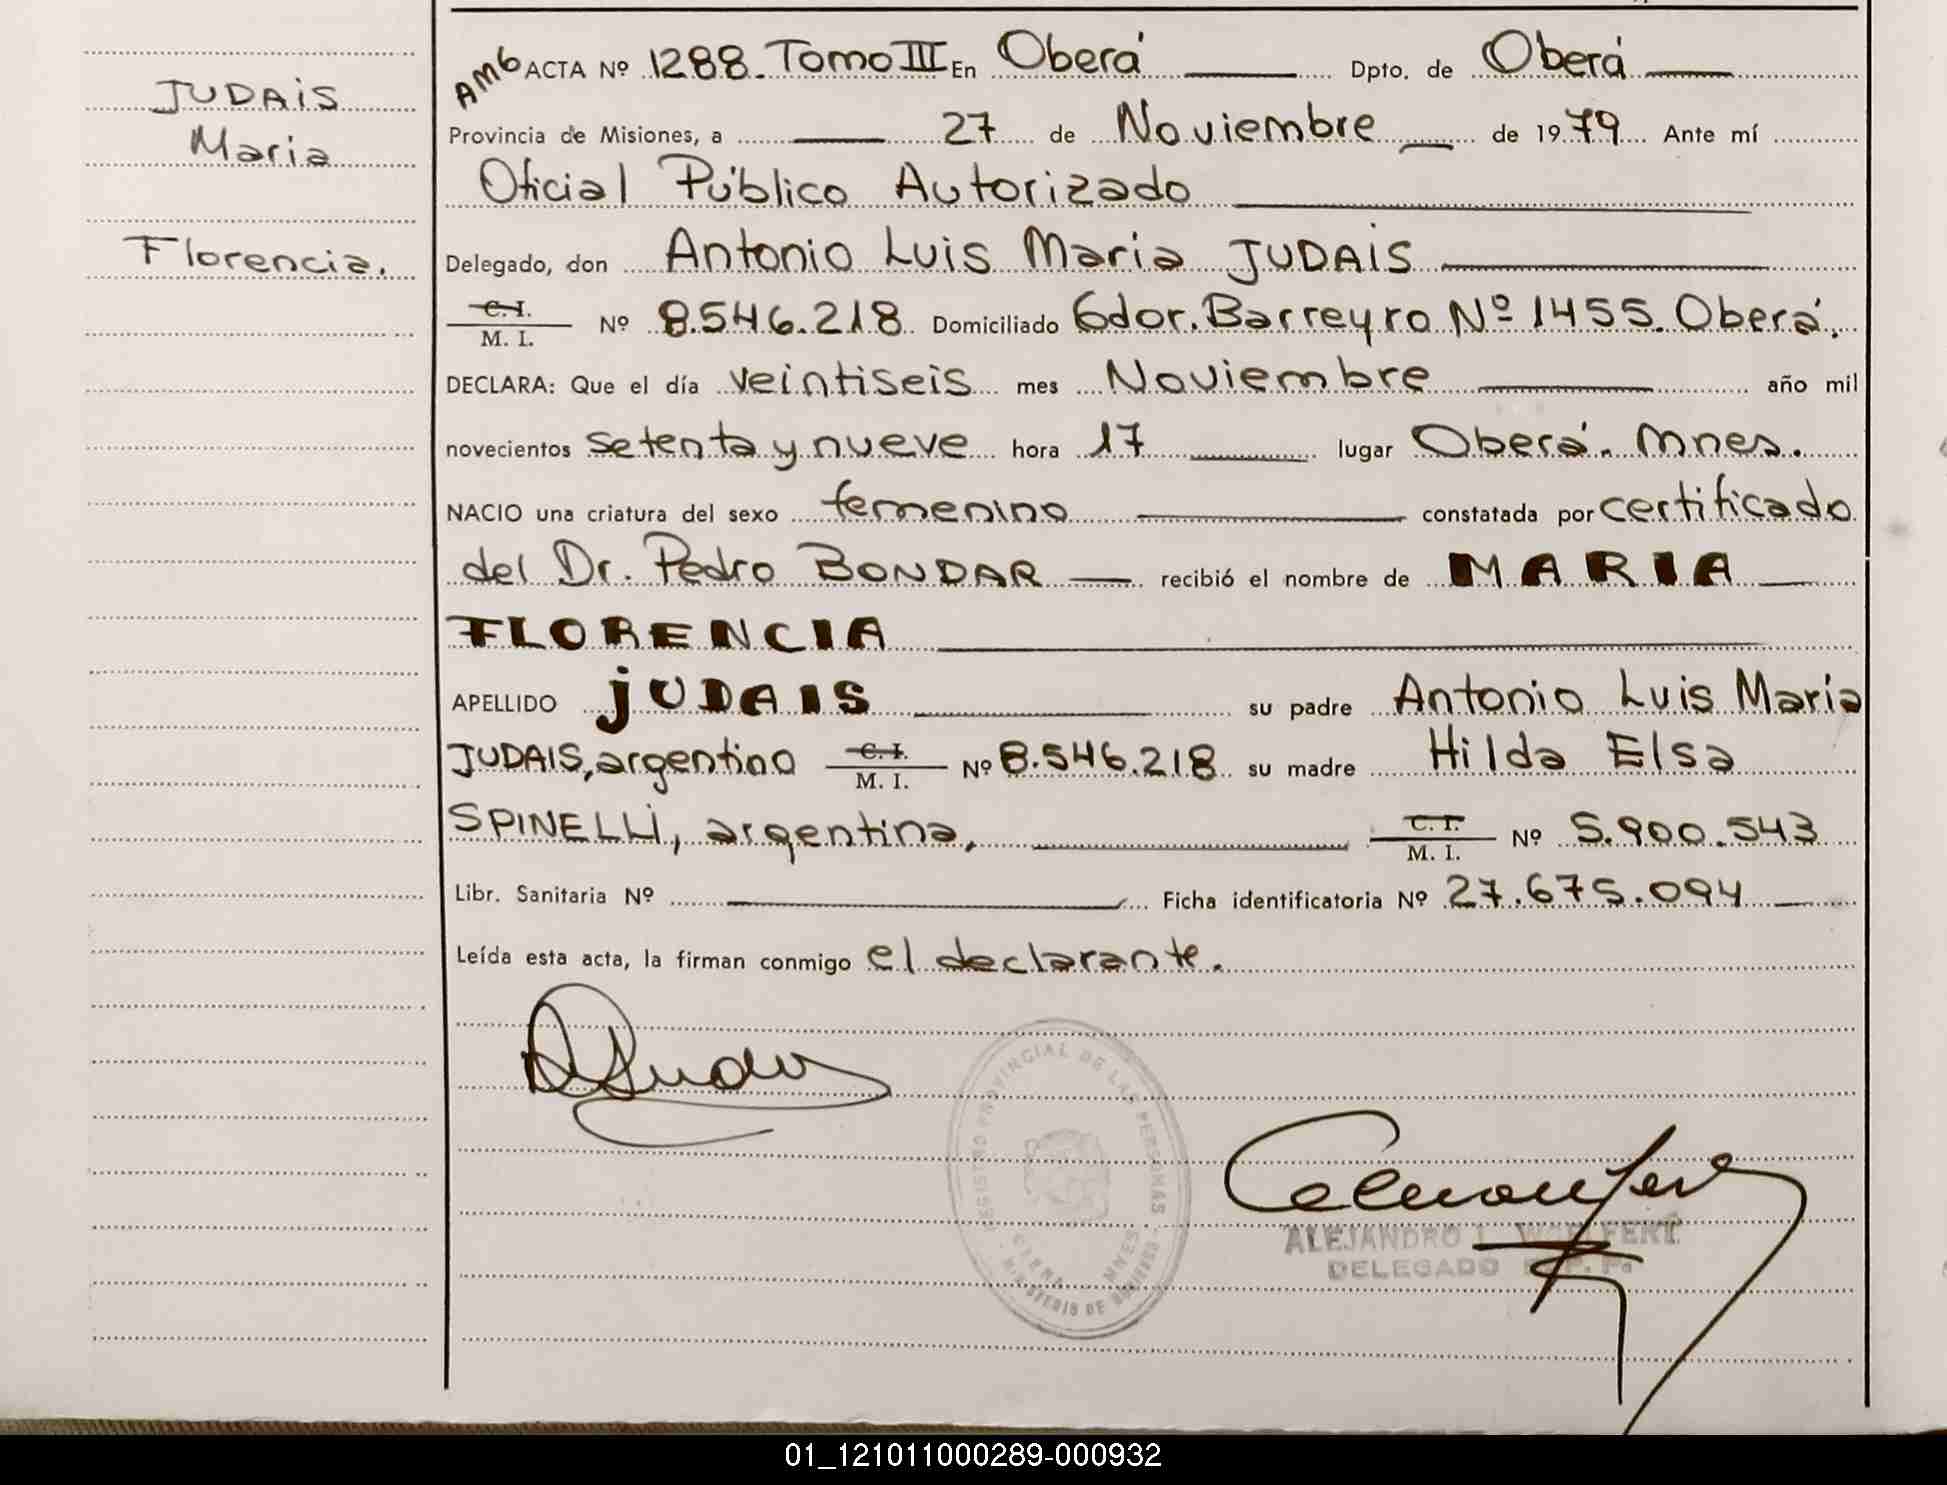 JUDAIS
Maria
Florencia.
AMb ACTA Nº 1288. Tomo III En Oberá Dpto. de Oberá
Provincia de Misiones, a 27 de Noviembre de 1979 Ante mí
Oficial Público Autorizado
Delegado, don Antonio Luis Maria JUDAIS
C. I.
M. I. Nº 8.546.218 Domiciliado Gdor. Barreyro Nº 1455. Oberá.
DECLARA: Que el día veintiseis mes Noviembre año mil
novecientos setenta y nueve hora 17 lugar Oberá. Mnes.
NACIO una criatura del sexo femenino constatada por certificado
del Dr. Pedro BONDAR recibió el nombre de MARIA
FLORENCIA
APELLIDO JUDAIS su padre Antonio Luis Maria
JUDAIS, argentino C. I. M. I. Nº 8.546.218 su madre Hilda Elsa
SPINELLI, argentina, C. I. M. I. Nº 5.900.543
Libr. Sanitaria Nº Ficha identificatoria Nº 27.675.094
Leída esta acta, la firman conmigo el declarante.
REGISTRO PROVINCIAL DE LAS PERSONAS
MNES
ALEJANDRO L. WOHLFERT
DELEGADO
01_121011000289-000932